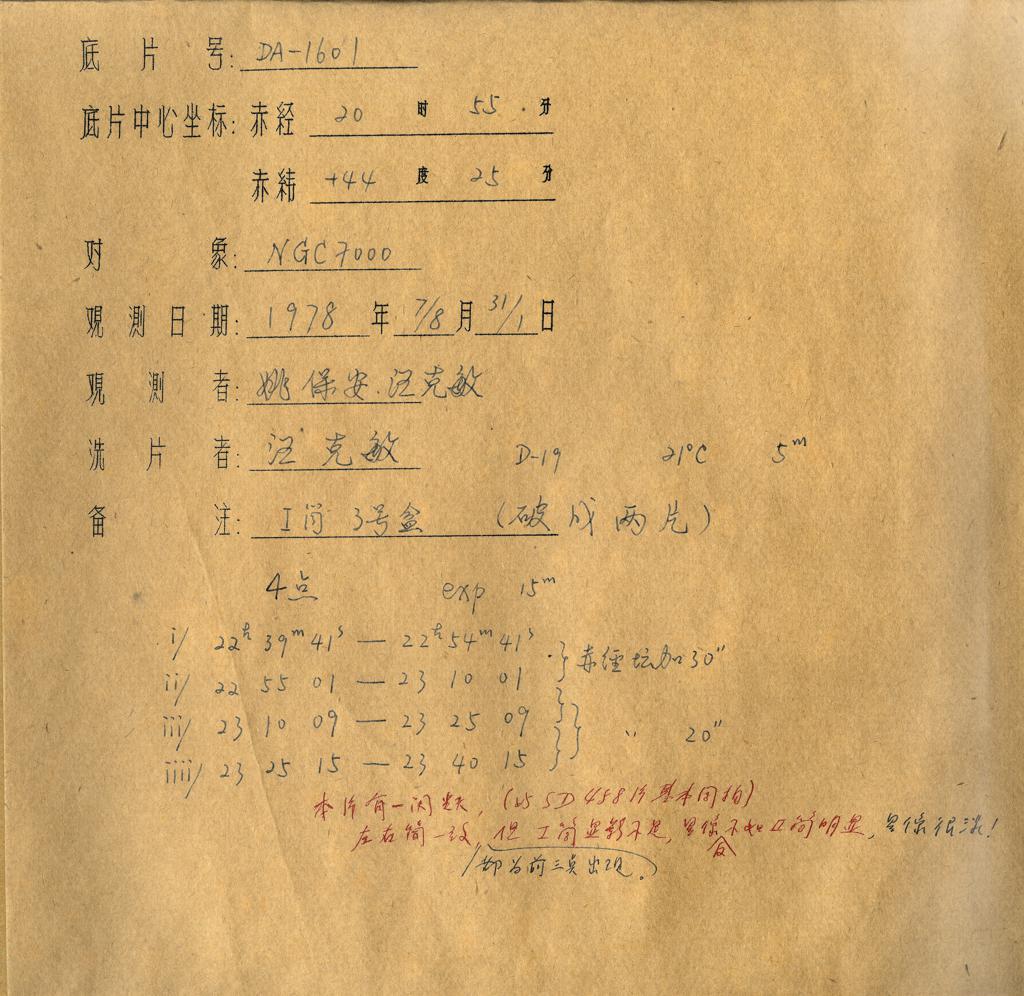 底片号: DA-1601
底片中心坐标: 赤经 20 时 55 分
赤纬 +44 度 25 分
对象: NGC7000
观测日期: 1978 年 7/8 月 31/1 日
观测者: 姚保安. 汪克敏
洗片者: 汪克敏 D-19 21°C 5m
备注: I筒 3号盒 (破成两片)
4点 exp 15m
i/ 22h 39m 41s — 22h 54m 41s
ii/ 22 55 01 — 23 10 01 } 赤经 加30"
iii/ 23 10 09 — 23 25 09
iiii/ 23 25 15 — 23 40 15 } " 20"
本片有一闪, (与SD 458片基本同拍)
左右筒一致, 但 I 筒显影不足, 星像不如 II 筒明显, 星像很淡!
都为前三点出现。